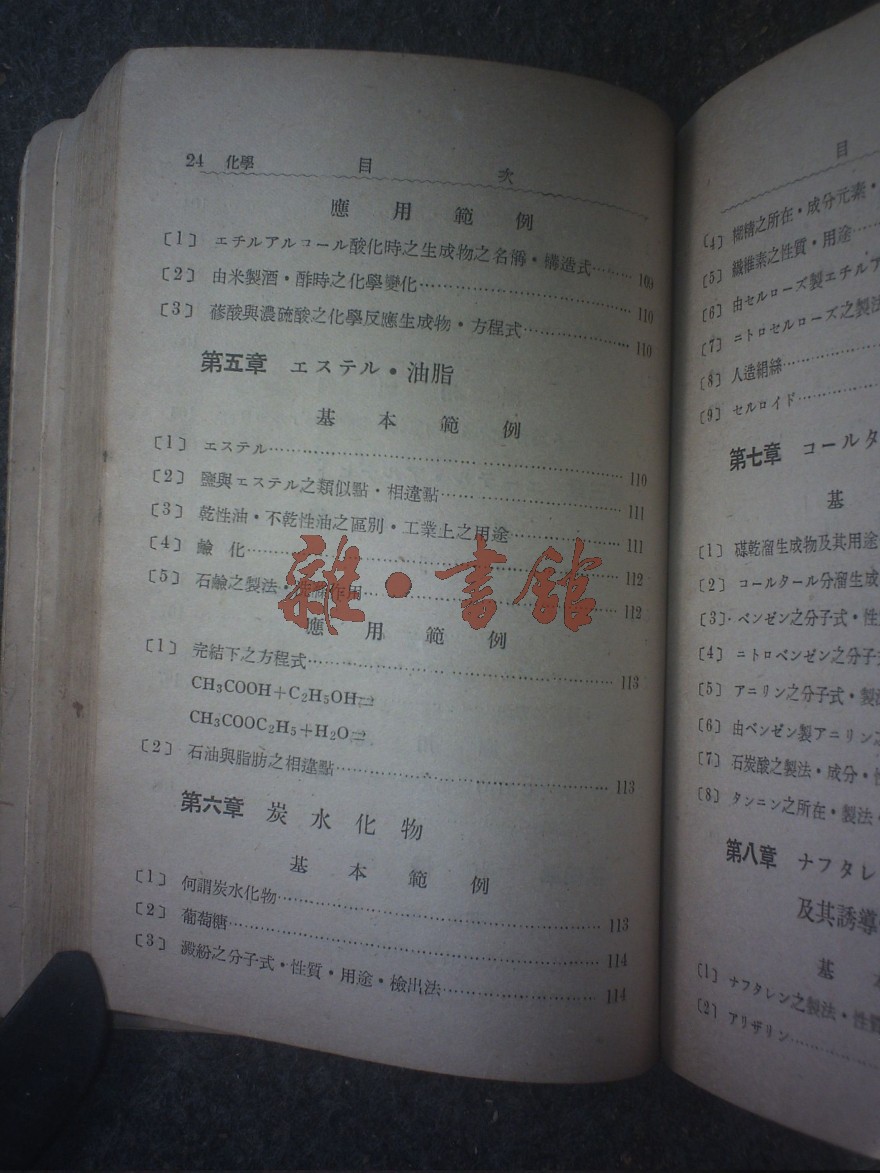 24 化學 目 次
應 用 範 例
〔1〕 エチルアルコール酸化時之生成物之名稱・構造式………109
〔2〕 由米製酒・酢時之化學變化………110
〔3〕 蓚酸與濃硫酸之化學反應生成物・方程式………110
第五章 エステル・油脂
基 本 範 例
〔1〕 エステル………110
〔2〕 鹽與エステル之類似點・相違點………111
〔3〕 乾性油・不乾性油之區別・工業上之用途………111
〔4〕 鹼 化………112
〔5〕 石鹼之製法・作用………112
應 用 範 例
〔1〕 完結下之方程式………113
CH₃COOH+C₂H₅OH⇄
CH₃COOC₂H₅+H₂O⇄
〔2〕 石油與脂肪之相違點………113
第六章 炭 水 化 物
基 本 範 例
〔1〕 何謂炭水化物………113
〔2〕 葡萄糖………114
〔3〕 澱粉之分子式・性質・用途・檢出法………114
雜・書館
目
〔4〕 糖之所在・成分元素・
〔5〕 纖維素之性質・用途………
〔6〕 由セルローズ製エチルア
〔7〕 ニトロセルローズ之製法
〔8〕 人造絹絲………
〔9〕 セルロイド………
第七章 コールタ
基
〔1〕 煤乾溜生成物及其用途
〔2〕 コールタール分溜生成
〔3〕 ベンゼン之分子式・性
〔4〕 ニトロベンゼン之分子
〔5〕 アニリン之分子式・製
〔6〕 由ベンゼン製アニリン
〔7〕 石炭酸之製法・成分・
〔8〕 タンニン之所在・製法・
第八章 ナフタレ
及其誘導
基
〔1〕 ナフタレン之製法・性
〔2〕 アリザリン………